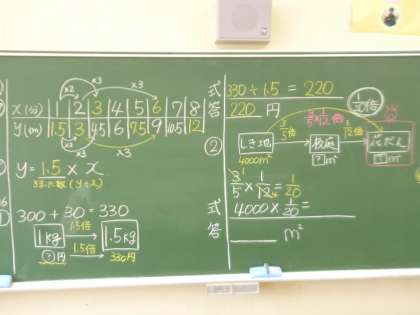 x(分) 1 2 3 4 5 6 7 8
y(cm) 1.5 3 4.5 6 7.5 9 10.5 12
×2 ×3 ×3
×2 ×3
y = 1.5 × x
決まった数(y÷x)
①
300 + 30 = 330
1kg 1.5倍 1.5kg
?円 1.5倍 330円
式 330 ÷ 1.5 = 220
答 220 円
②
3/5 × 1/12 倍
1/20倍
しき地 3/5倍 校庭 1/12倍 花だん
4000m² ?m² ?m²
3/5 × 1/12 = 1/20
式 4000 × 1/20 =
答 m²